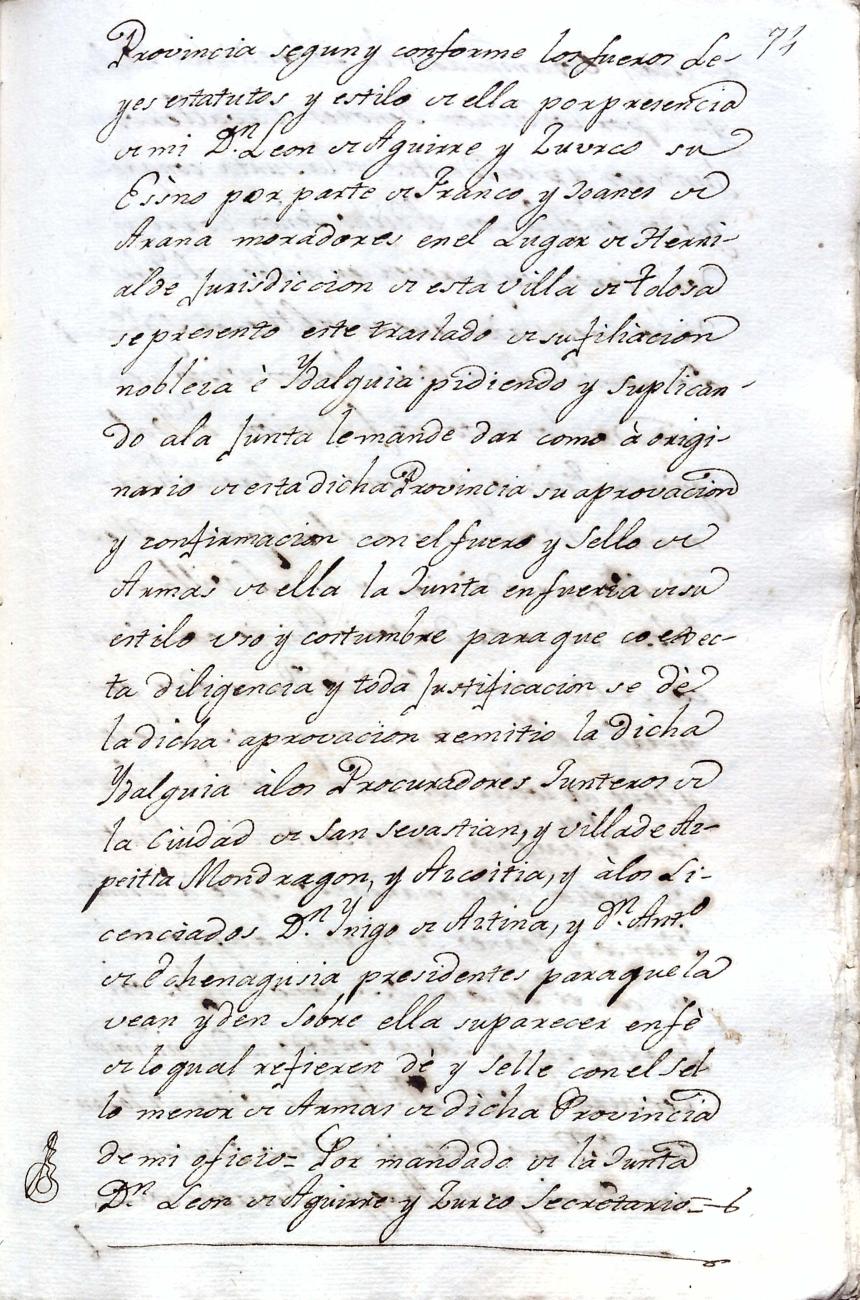 74
Provincia segun y conforme los fueros Le-
yes estatutos y estilo de ella por presencia
de mi Dn Leon de Aguirre y Zurco su
Essno por parte de Franco y Joanes de
Arana moradores en el Lugar de Herni-
alde Jurisdiccion de esta villa de Tolosa
se presento este traslado de su filiacion
nobleza è Ydalguia pidiendo y suplican-
do a la Junta le mande dar como à origi-
nario de esta dicha Provincia su aprovacion
y confirmacion con el fuero y Sello de
Armas de ella la Junta en fuerza de su
estilo uso y costumbre para que co
ta diligencia y toda Justificacion se dè
la dicha aprovacion remitio la dicha
Ydalguia à los Procuradores Junteros de
la Ciudad de San Sevastian, y villa de Az-
peitia Mondragon, y Azcoitia, y à los Li-
cenciados Dn Ynigo de Artina, y Dn Anto
de Echenagusia presidentes para que la
vean y den Sobre ella su parecer en fè
de lo qual refieren dè y selle con el sel
lo menor de Armas de dicha Provincia
de mi oficio= Por mandado de la Junta
Dn Leon de Aguirre y Zurco Secretario=